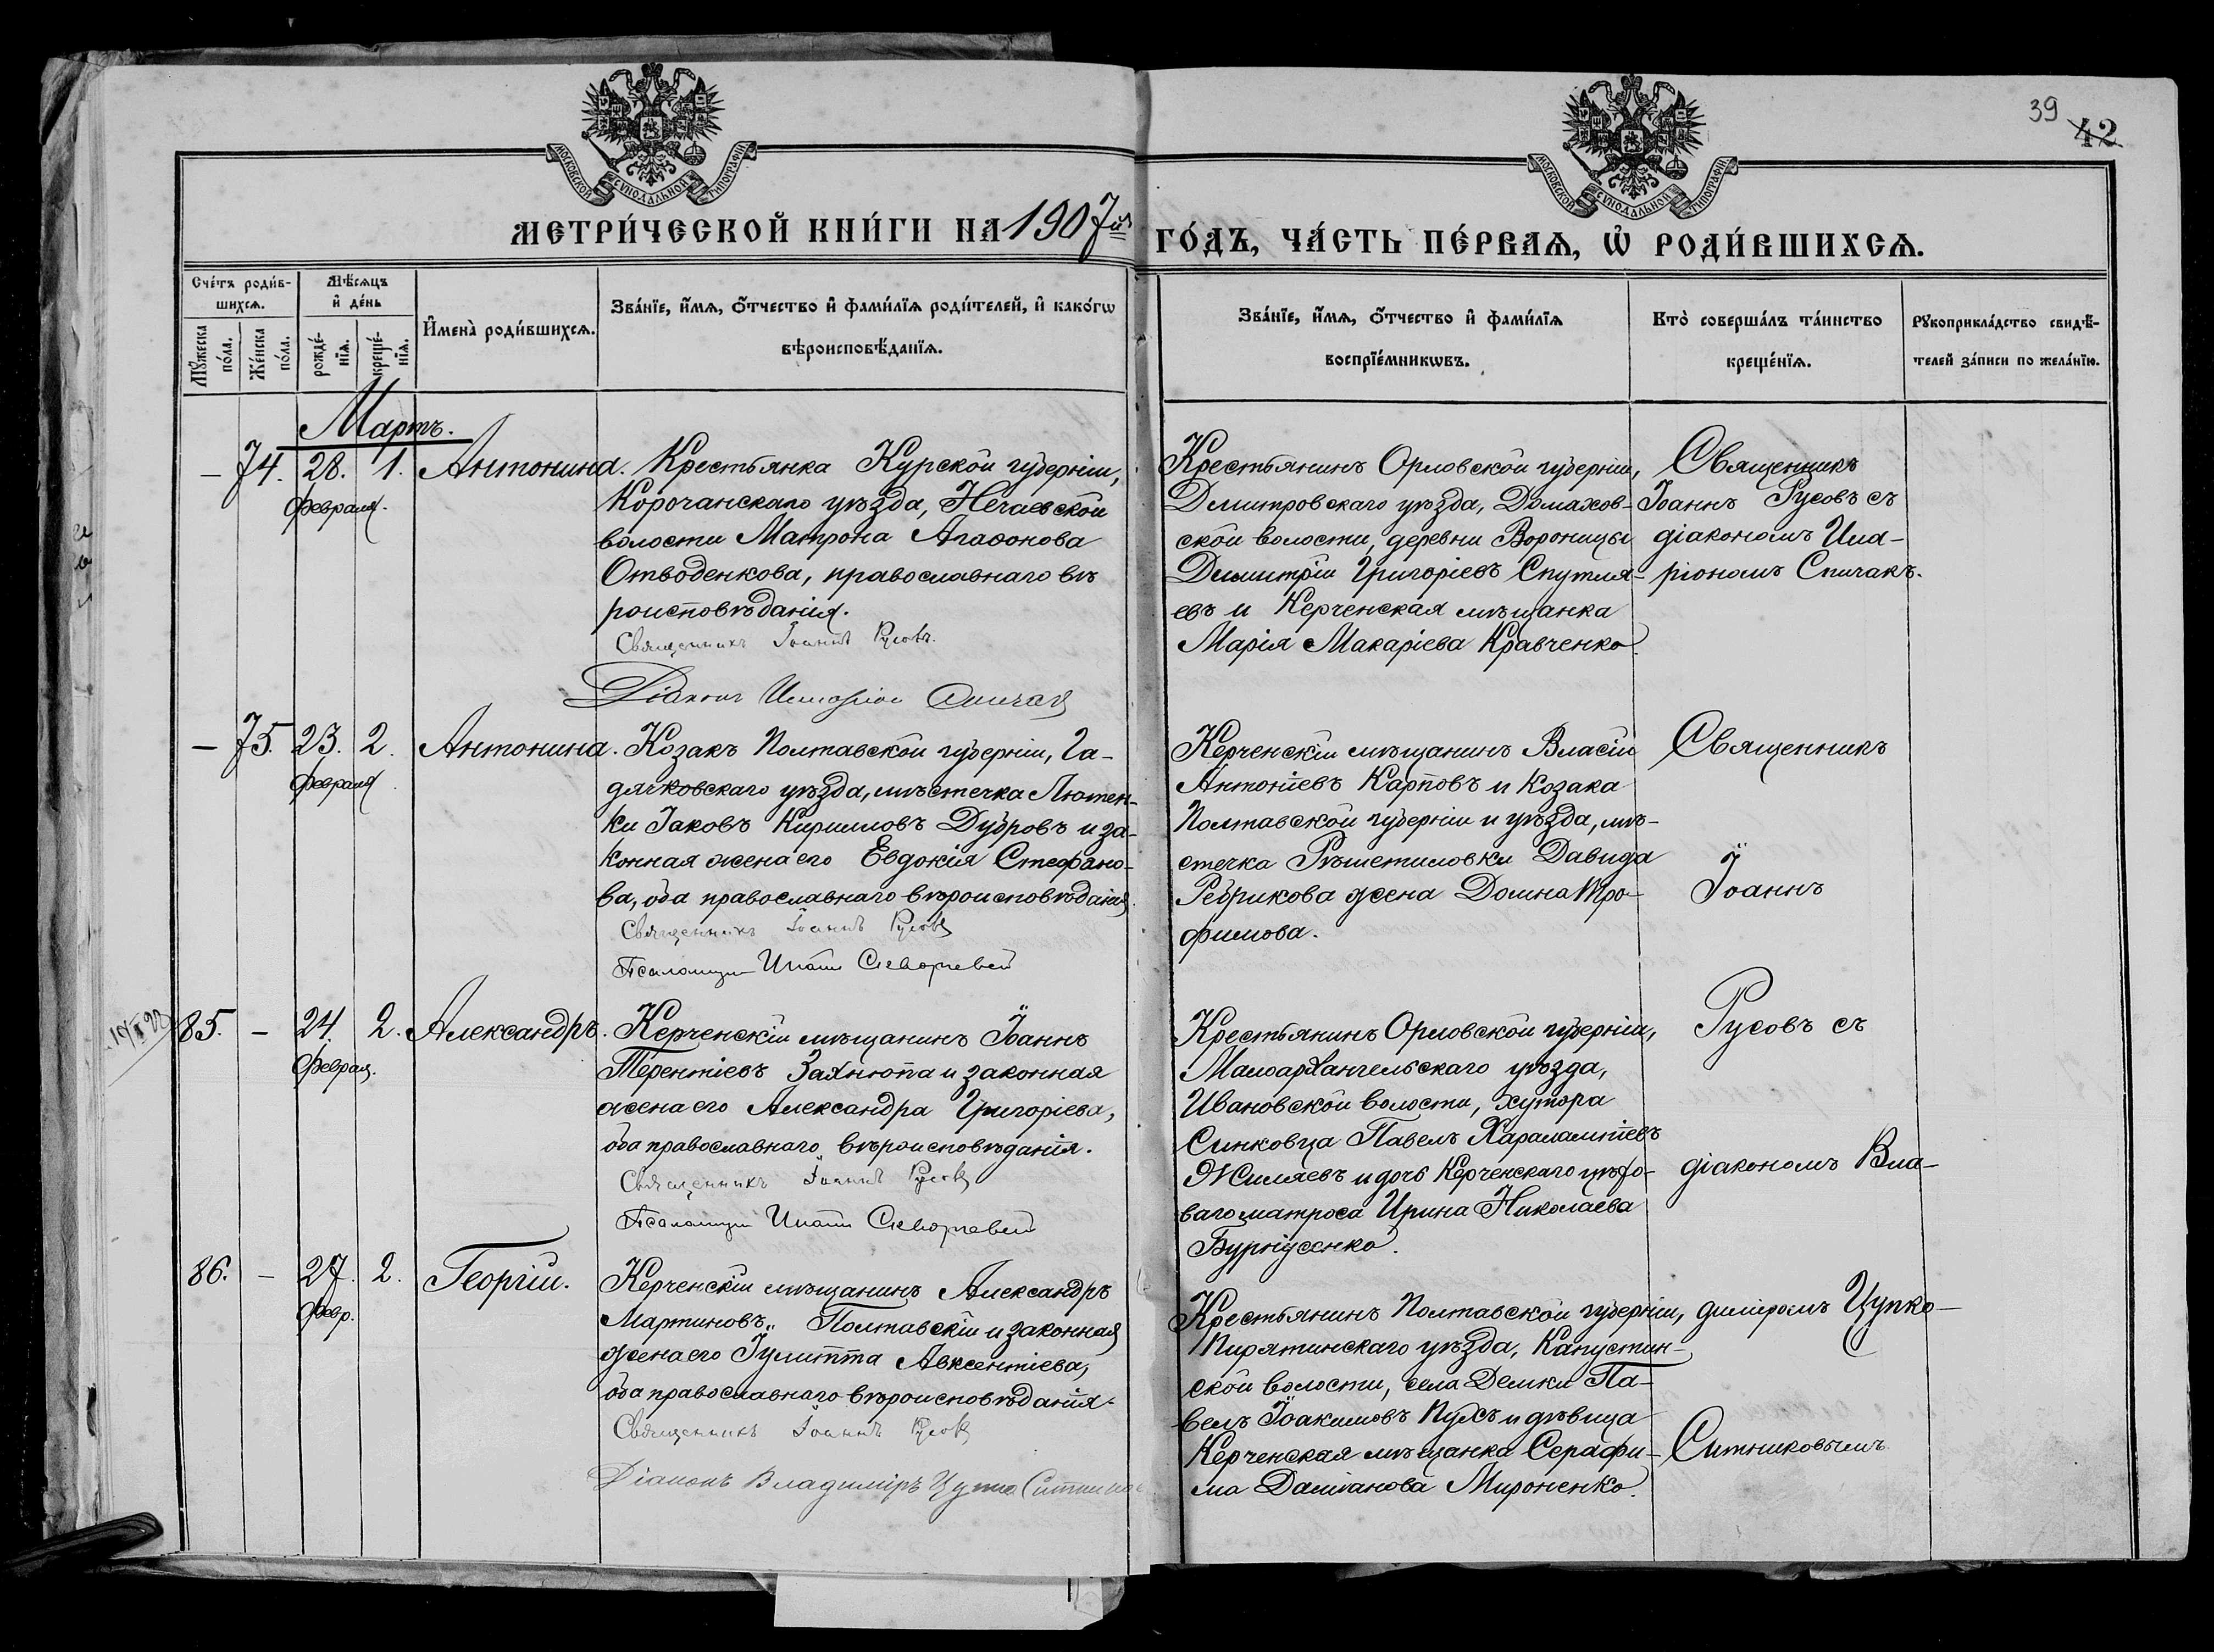 39
42
МОСКОВСКОЙ СУНОДАЛЬНОЙ ТИПОГРАФІИ
МОСКОВСКОЙ СУНОДАЛЬНОЙ ТИПОГРАФІИ
МЕТРИ́ЧЕСКОЙ КНИ́ГИ НА 1907й ГО́ДЪ, ЧА́СТЬ ПЕ́РВАѦ, Ѡ҆ РОДИ́ВШИХСѦ.
Сче́тъ роди́в-
шихсѧ.
Мꙋ́жеска по́ла.
Же́нска по́ла.
Мѣ́сѧцъ
и҆ де́нь
рожде́-
нїѧ.
креще́-
нїѧ.
И҆мена̀ роди́вшихсѧ.
Зва́нїе, и҆́мѧ, ѻ҆́тчество и҆ фами́лїѧ роди́телей, и҆ како́гѡ
вѣроисповѣ́данїѧ.
Зва́нїе, и҆́мѧ, ѻ҆́тчество и҆ фами́лїѧ
воспрїе́мникѡвъ.
Кто̀ соверша́лъ та́инство
креще́нїѧ.
Рꙋкоприкла́дство свидѣ́-
телей за́писи по жела́нїю.
Мартъ.
– 74. 28. 1. Антонина.
Февраля.
Крестьянка Курской губерніи,
Корочанскаго уѣзда, Нечаевской
волости Матрона Агаѳонова
Отводенкова, православнаго вѣ
роисповѣданія.
Священникъ Іоаннъ Русовъ.
Діаконъ Иларіон Спичак
Крестьянинъ Орловской губерніи,
Дмитровскаго уѣзда, Домахов-
ской волости, деревни Вороницы
Димитрій Григоріевъ Спутля-
евъ и Керченская мѣщанка
Марія Макаріева Кравченко.
Священникъ
Іоаннъ Русовъ съ
діакономъ Ила-
ріономъ Спичакъ.
– 75. 23. 2. Антонина.
Февраля
Козакъ Полтавской губерніи, Га-
дячковскаго уѣзда, мѣстечка Лютен-
ки Іаковъ Кирилловъ Дубровъ и за-
конная жена его Евдокія Стефано-
ва, оба православнаго вѣроисповѣданія.
Священникъ Іоаннъ Русовъ
Псаломщик
Керченскій мѣщанинъ Власій
Антоніевъ Карповъ и Козака
Полтавской губерніи и уѣзда, мѣ-
стечка Рѣшетиловки Давида
Ребрикова жена Домна Тро-
фимова.
Священникъ
Іоаннъ
85. – 24. 2. Александръ.
Феврал.
Керченскій мѣщанинъ Іоаннъ
Терентіевъ Захнюпа и законная
жена его Александра Григоріева,
оба православнаго вѣроисповѣданія.
Священникъ Іоаннъ Русовъ
Псаломщик
Крестьянинъ Орловской губерніи,
Малоархангельскаго уѣзда,
Ивановской волости, хутора
Синковца Павелъ Харалампіевъ
Жиляевъ и дочь Керченскаго цѣхо-
ваго матроса Ирина Николаева
Бурнусенко.
Русовъ съ
діакономъ Вла-
86. – 27. 2. Георгій.
Февр.
Керченскій мѣщанинъ Александръ
Мартиновъ Полтавскій и законная
жена его Іулитта Авксентіева,
оба православнаго вѣроисповѣданія.
Священникъ Іоаннъ Русовъ
Діаконъ Владиміръ Цупко
Крестьянинъ Полтавской губерніи,
Пирятинскаго уѣзда, Капустин-
ской волости, села Демки Па-
велъ Іоакимовъ Пухъ и дѣвица
Керченская мѣщанка Серафи-
ма Даміанова Мироненко.
диміромъ Цупко-
Ситниковымъ.